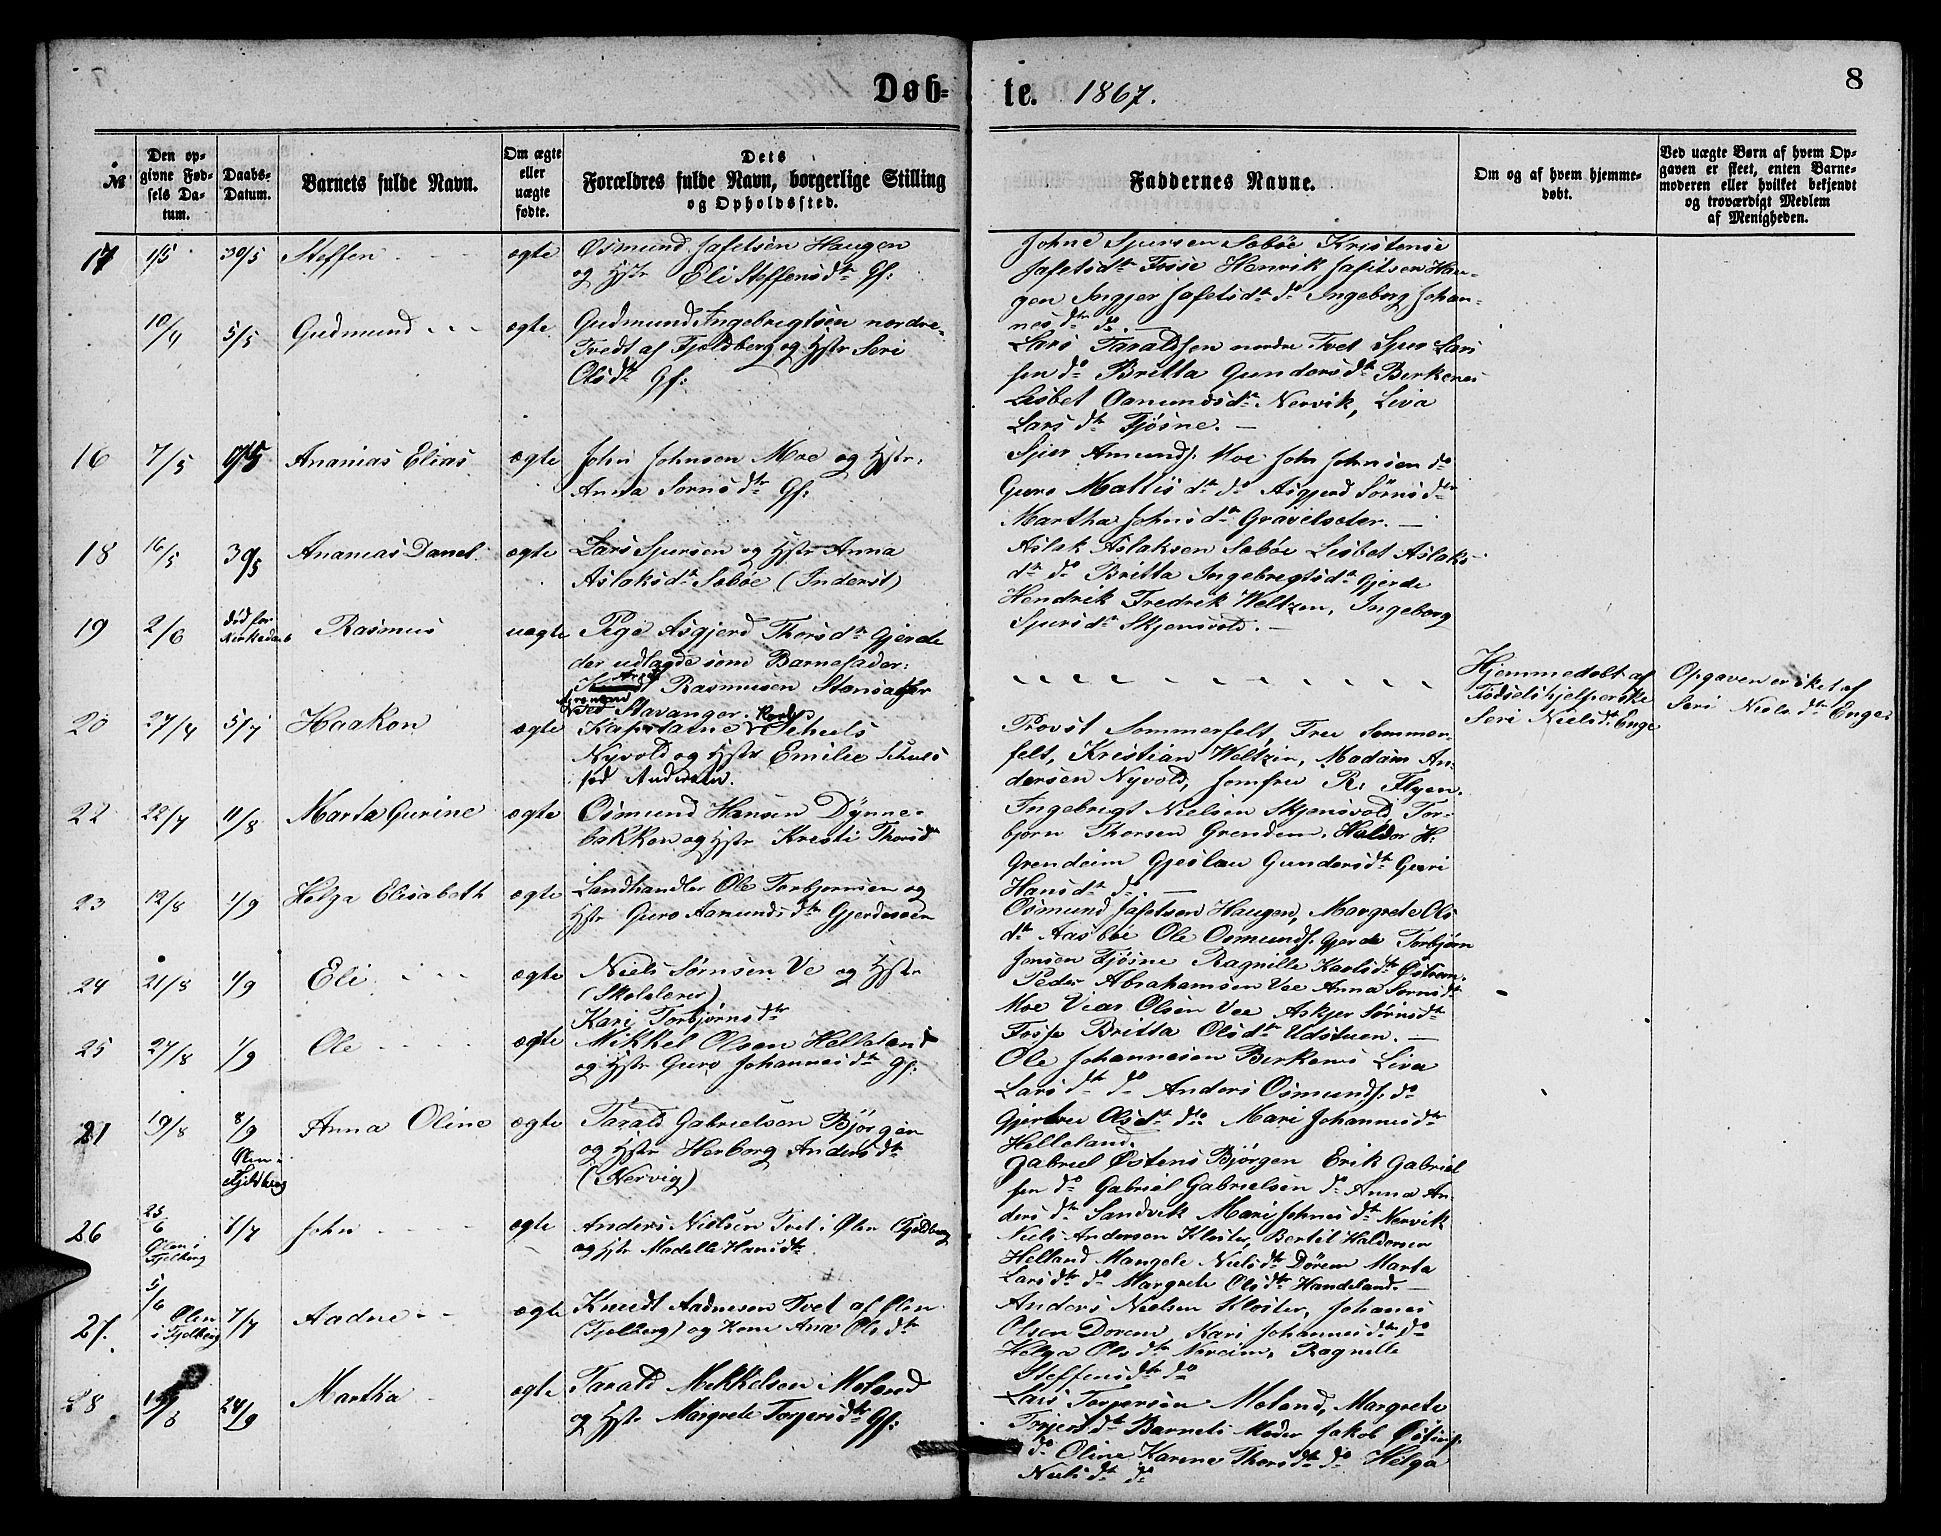 Døb-
te. 1867.
8
№
Den op-
givne Fød-
sels Da-
tum.
Daabs-
Datum.
Barnets fulde Navn.
Om ægte
eller
uægte
fødte.
Dets
Forældres fulde Navn, borgerlige Stilling
og Opholdssted.
Faddernes Navne.
Om og af hvem hjemme-
døbt.
Ved uægte Børn af hvem Op-
gaven er skeet, enten Barne-
moderen eller hvilket bekjendt
og troværdigt Medlem
af Menigheden.
17 1/5 30/5 Steffen ægte
Osmund Jafetsen Haugen
og Hstr Eli Steffensdtr Gf:
Johne Sjursen Sabøe Kristense
Jafetsdtr Fosse Henrik Jafetsen Hau-
gen Ingjer Jafetsdtr do Ingeborg Johan-
nesdtr do
10/4 5/5 Gudmund ægte
Gudmund Ingebrigtsen nordre
Tvedt af Fjeldberg og Hstr Seri
Olsdtr Gf:
Lars Taraldsen nordre Tvet Sjur Lars
sen do Britta Gundersdtr Birkenes
Lisbet Aamundsdtr Nervik, Liva
Larsdtr Fjøsne.
16 7/5 Ananias Elias ægte
John Johnsen Moe og Hstr.
Anna Sørnsdtr Gf:
Sjur Amunds. Moe John Johnsen do
Guro Mattisdtr do Asgjerd Sørnsdtr
Martha Johnsdtr Gravelseter.
18 16/5 30/5 Ananias Danel ægte
Lars Sjursen og Hstr Anna
Aslaksdtr Sabøe (Inderst)
Aslak Aslaksen Sabøe Lisbet Aslaks-
dtr do Britta Ingebregtsdtr Gjerde
Hendrik Fredrik Weltzen, Ingeborg
Sjursdtr Skjensvold.
19 2/6 død før Kirkedaab Rasmus uægte
Pige Asgjerd Thorsdtr Gjerde
der udlagde som Barnefader:
Rasmusen
Stavanger.
Hjemmedøbt af
Fødselshjelperske
Seri Nielsdtr Enge
Opgaven er sket af
Seri Nielsdtr Enge
20 27/4 5/7 Haakon ægte
Kaptaine Schuls
Nyvold og Hstr Emilie Schuls
fød Andersen.
Provst Sommerfelt, Frue Sommer-
felt, Kristian Weltzin, Madam An-
dersen Nyvold, Jomfru R. Flyen.
22 22/7 11/8 Marta Gurine ægte
Osmund Hansen Dynne-
bakken og Hstr Kristi Thorsdtr
Ingebrigt Nielsen Skjensvold, Tor-
bjørn Thorsen Grendem, Haldor H.
Grendeim Gjeslau Gundersdtr Guri
Hansdtr do.
23 12/8 1/9 Helga Elisabeth ægte
Landhandler Ole Torbjørnsen og
Hstr Guro Aamundsdtr Gjerdesøen
Osmund Jafetsen Haugen, Margrete Ols
dtr Aasbøe Ole Osmunds. Gjerde Torbjørn
Jonsen Fjøsne Ragnille Karlsdtr Østrem.
24 21/8 1/9 Eli ægte
Niels Sørnsen Ve og Hstr
(Skolelærer)
Kari Torbjørnsdtr
Peder Abrahamsen Vee Anna Sørnsdtr
Moe Vier Olsen Vee Askjer Sørnsdtr
Fosse Britta Olsdtr Udstuen.
25 27/8 1/9 Ole ægte
Mikkel Olsen Helleland
og Hstr Guro Johannesdtr Gf:
Ole Johannesen Birkenes Liva
Larsdtr do Anders Osmunds. do
Gjertru Olsdtr do Mari Johannesdtr
Helleland.
21 19/8 8/9 Ølen i Fjeldberg Anna Oline ægte
Tarald Gabrielsen Bjørgen
og Hstr Herborg Andersdtr
(Nervig)
Gabriel Østens Bjørgen Erik Gabriel
sen do Gabriel Gabrielsen do Anna An-
dersdtr Sandvik Mari Johnesdtr Nervik
26 23/6 Ølen i Fjelberg 7/7 John ægte
Anders Nielsen Tvet i Ølen (Fjeldberg
og Hstr Madelle Hansdtr.
Niels Andersen Kloster, Bertil Haldorsen
Helland Mangele Nielsdtr Dørem Marta
Larsdtr do Margrete Olsdtr Handeland.
27. 5/6 Ølen i Fjelberg 7/7 Aadne ægte
Knudt Aadnesen Tvet af Ølen
(Fjelberg) og Kone Ana Olsdtr
Anders Nielsen Kloster, Johanes
Olsen Dorem, Kari Johannesdtr do
Helga Olsdtr Noreim, Ragnille
Steffensdtr do
28 24/9 Martha ægte
Tarald Mekkelsen Moland
og Hstr Margrete Torgersdtr Gf:
Lars Torgersen Moland, Margrete
Barnets Moder Jakob
do Oline Karine Thorsdtr do Helga
Nielsdtr do